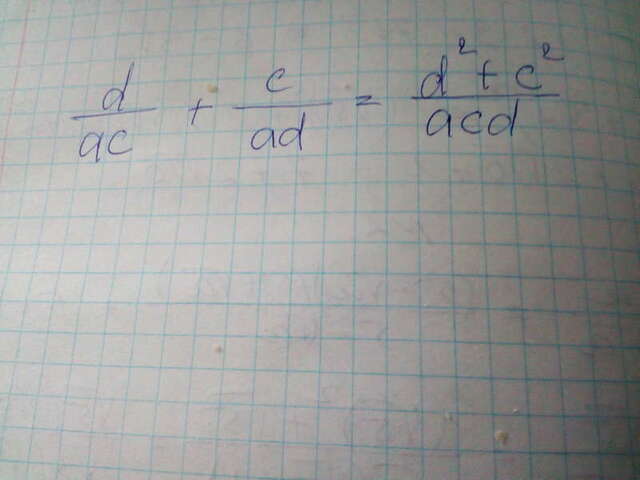 d/ac + c/ad = d²+c²/acd